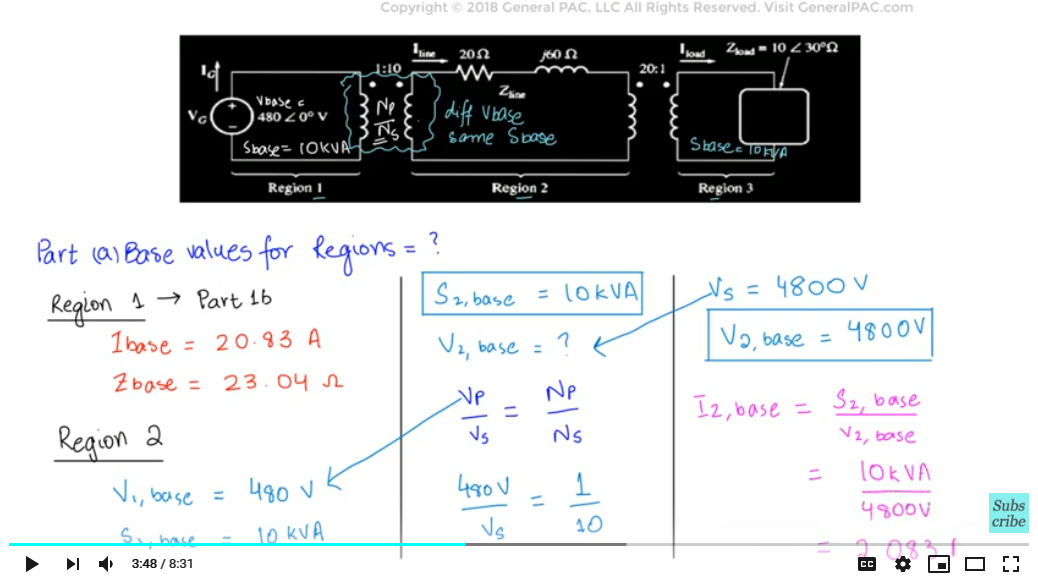 Copyright © 2018 General PAC, LLC All Rights Reserved. Visit GeneralPAC.com
I_G
V_G
Vbase =
480 ∠ 0° V
Sbase = 10KVA
1:10
Np
Ns
I_line
20 Ω
j60 Ω
Z_line
diff Vbase
same Sbase
20:1
I_load
Z_load = 10 ∠ 30° Ω
Sbase = 10KVA
Region 1
Region 2
Region 3
Part (a) Base values for Regions = ?
Region 1 → Part 1b
Ibase = 20.83 A
Zbase = 23.04 Ω
Region 2
V1, base = 480 V
S1, base = 10 KVA
S2, base = 10KVA
V2, base = ?
Vp/Vs = Np/Ns
480V/Vs = 1/10
Vs = 4800 V
V2, base = 4800V
I2, base = S2, base/V2, base
= 10KVA/4800V
= 2.083
Subs
cribe
3:48 / 8:31
CC